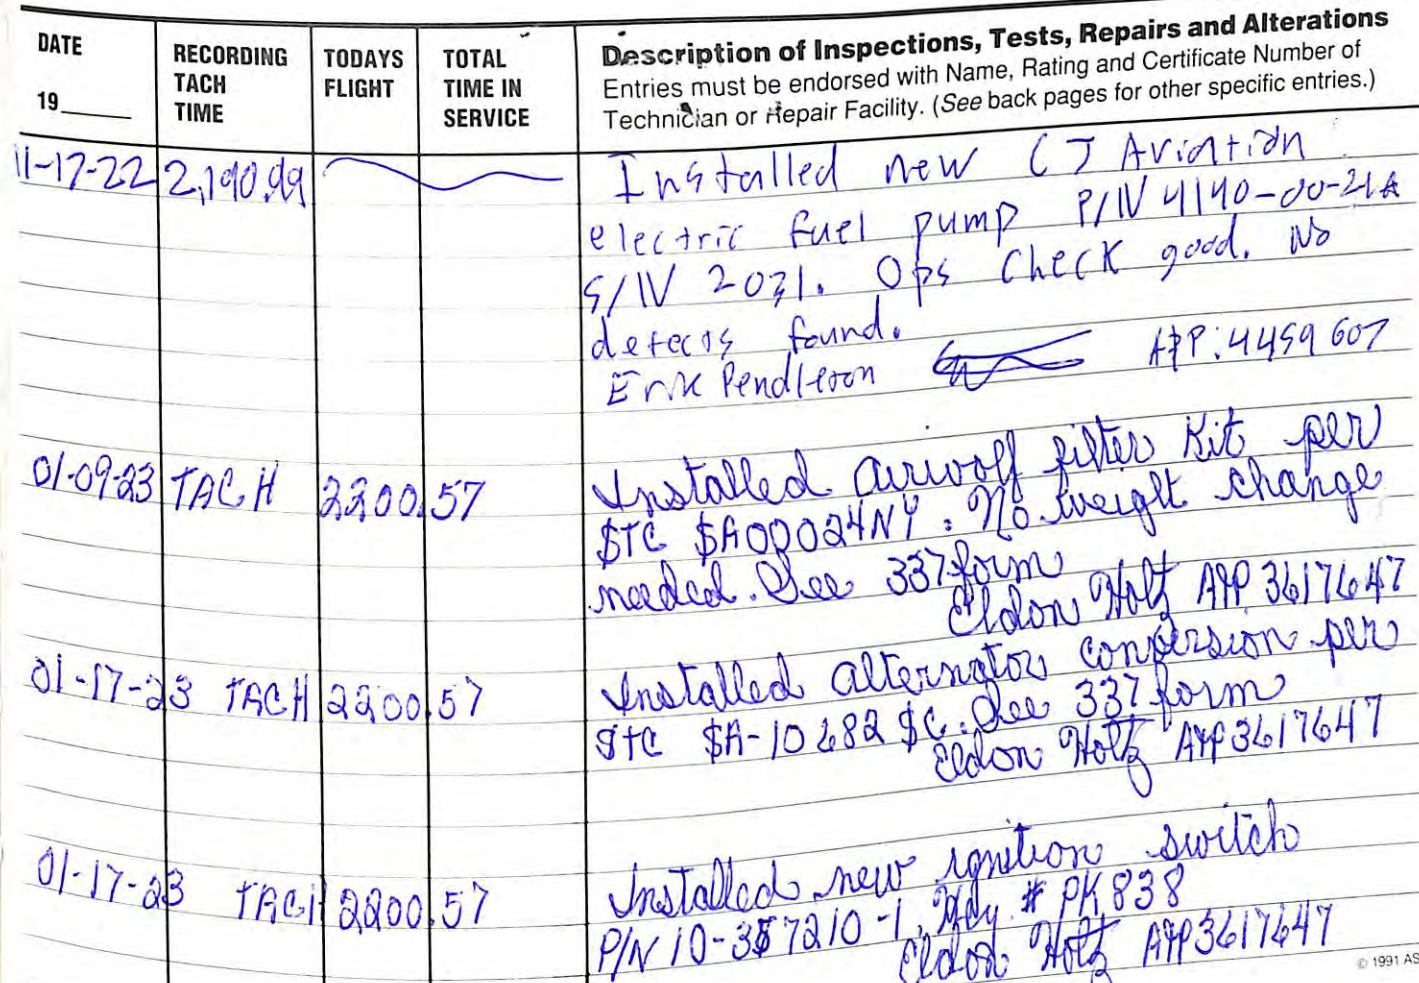 DATE
19____
RECORDING
TACH
TIME
TODAYS
FLIGHT
TOTAL
TIME IN
SERVICE
Description of Inspections, Tests, Repairs and Alterations
Entries must be endorsed with Name, Rating and Certificate Number of
Technician or Repair Facility. (See back pages for other specific entries.)
11-17-22 2,190.99 Installed new CJ Aviation
electric fuel pump P/N 4140-00-21A
S/N 2031. Ops Check good. No
defects found.
Erik Pendleton A&P: 4459607
01-09-23 TACH 2200.57 Installed airwolf filter Kit per
STC SA00024NY. No weight change
needed. See 337 form
Eldon Holtz A&P 3617647
01-17-23 TACH 2200.57 Installed alternator conversion per
STC SA-10682 SC. See 337 form
Eldon Holtz A&P 3617647
01-17-23 TACH 2200.57 Installed new ignition switch
P/N 10-357210-1, # PK838
Eldon Holtz A&P 3617647
© 1991 AS